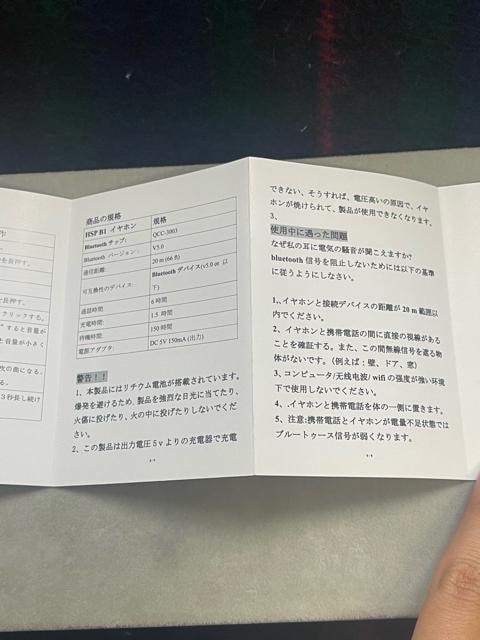 を長押し。
長押し。
クリックする。
"すると音量が
と音量が小さく
次の曲になる。
る。
3秒長し続け
商品の規格
HSP B1 イヤホン 規格
Bluetooth チップ: QCC-3003
Bluetooth バージョン: V5.0
通信距離: 20 m (66 ft)
可互換性のデバイス: Bluetooth デバイス(v5.0 or 以下)
通話時間: 6 時間
充電時間: 1.5 時間
待機時間: 150 時間
電源アダプタ: DC 5V 150mA (出力)
警告！！
1、本製品にはリチウム電池が搭載されています。
爆発を避けるため、製品を強烈な日光に当てたり、
火傷に投げたり、火の中に投げたりしないでくだ
さい。
2、この製品は出力電圧5 v よりの充電器で充電
できない、そうすれば、電圧高いの原因で、イヤ
ホンが焼けられて、製品が使用できなくなります。
3、
使用中に遇った問題
なぜ私の耳に電気の騒音が聞こえますか?
bluetooth 信号を阻止しないためには以下の基準
に従うようにしなさい。
1,、イヤホンと接続デバイスの距離が 20 m 範囲以
内でください。
2、イヤホンと携帯電話の間に直接の視線がある
ことを確証する。また、この間無線信号を遮る物
体がないです。（例えば：壁、ドア、窓）
3、コンピュータ/无线电波/ wifi の強度が強い環境
下で使用しないでください。
4、.イヤホンと携帯電話を体の一側に置きます。
5、注意:携帯電話とイヤホンが電量不足状態では
ブルートゥース信号が弱くなります。